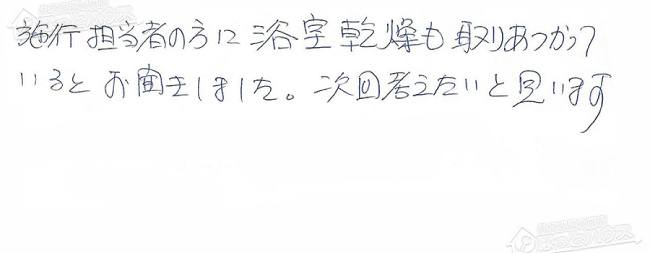 施行担当者の方に浴室乾燥も取りあつかって
いるとお聞きしました。次回考えたいと思います